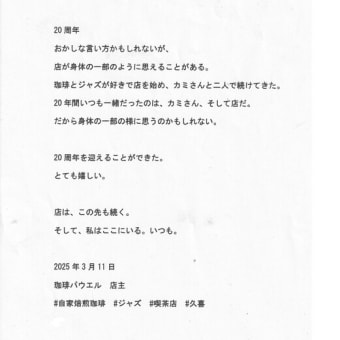 20周年
おかしな言い方かもしれないが、
店が身体の一部のように思えることがある。
珈琲とジャズが好きで店を始め、カミさんと二人で続けてきた。
20年間いつも一緒だったのは、カミさん、そして店だ。
だから身体の一部の様に思うのかもしれない。
20周年を迎えることができた。
とても嬉しい。
店は、この先も続く。
そして、私はここにいる。いつも。
2025年3月11日
珈琲パウエル　店主
#自家焙煎珈琲　#ジャズ　#喫茶店　#久喜